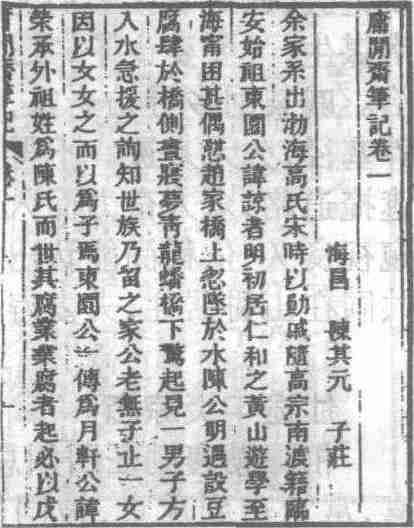 庸閒齋筆記卷一
海昌 陳其元 子莊
余家系出渤海高氏宋時以勳戚隨高宗南渡籍臨
安始祖東園公諱諒者明初居仁和之黃山遊學至
海甯困甚偶憩趙家橋上忽墜於水陳公明遇設豆
腐肆於橋側晝寢夢靑龍蟠橋下驚起見一男子方
入水急援之詢知世族乃留之家公老無子止一女
因以女女之而以爲子焉東園公一傳爲月軒公諱
榮承外祖姓爲陳氏而世其腐業業腐者起必以戌